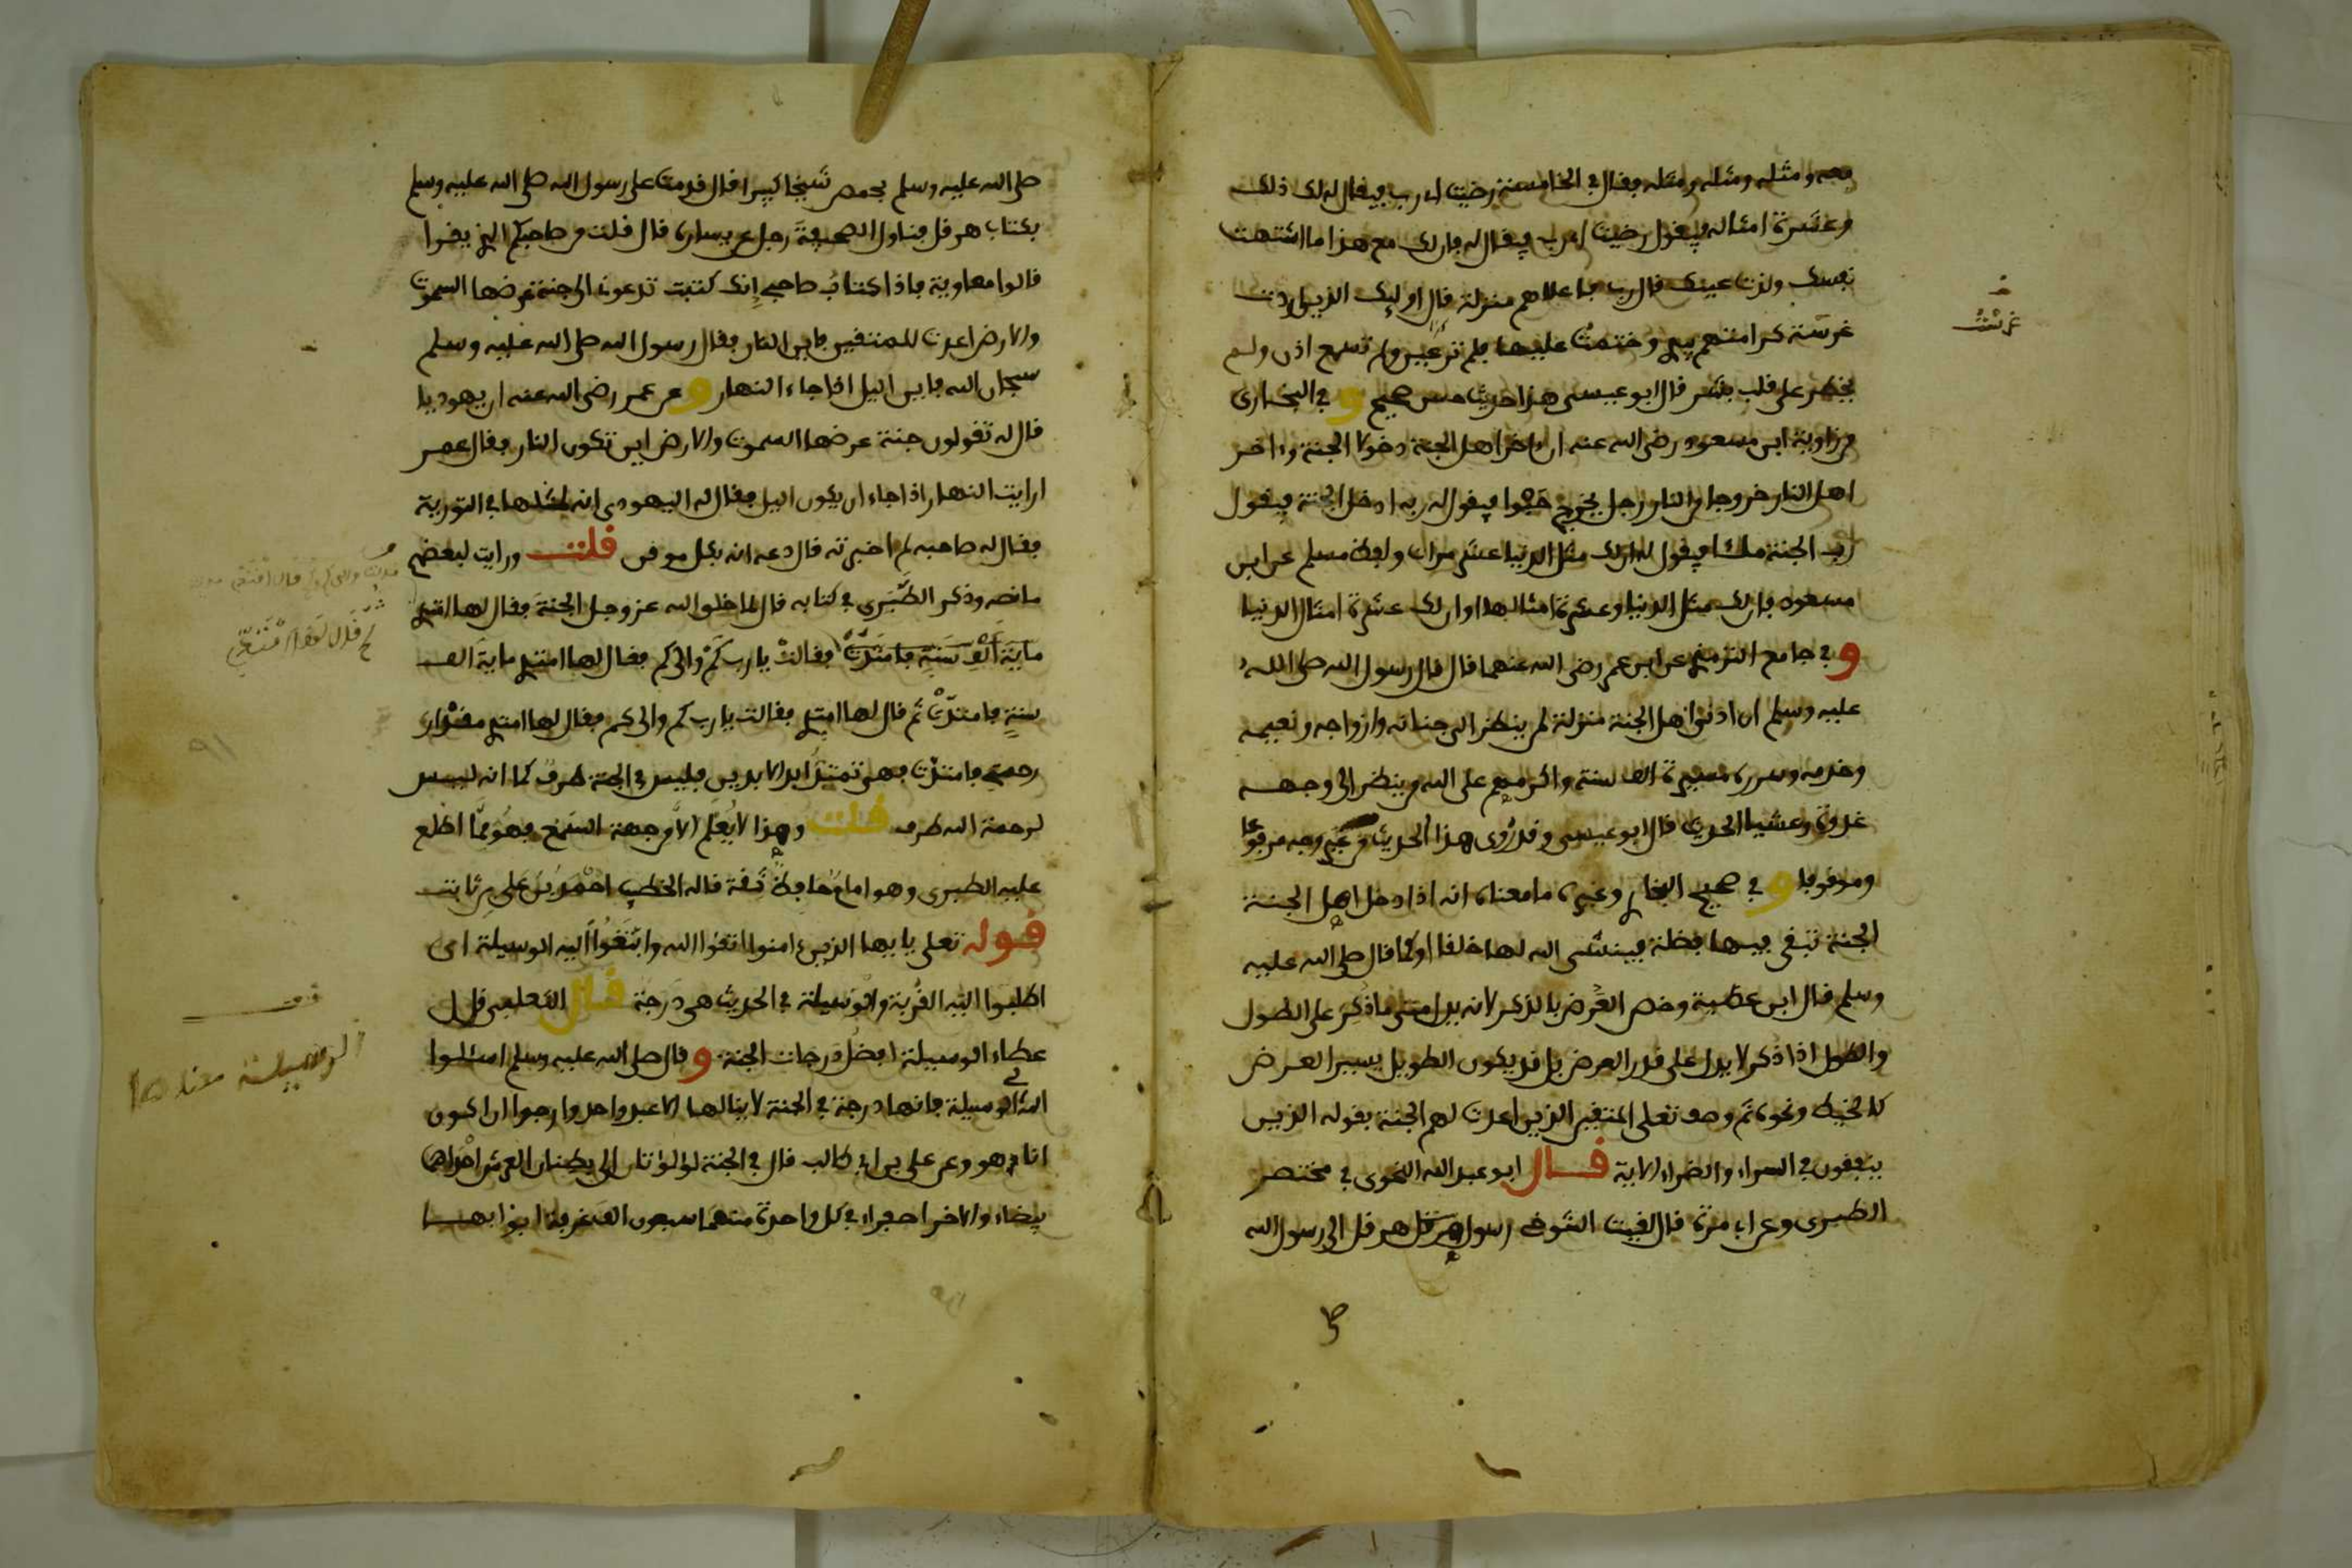 معه ومثله ومثله ومثله فقال في الخامسة رضيت اي رب فيقال له لك ذلك
وعشرة امثاله فيقول رضيت اي رب فيقال له فان لك مع هذا ما اشتهت
نفسك ولذت عينك قال رب فاعلاهم منزلة قال اوليك الذين اردت
غرست كرامتهم بيدي وختمت عليها فلم تر عين ولم تسمع اذن ولم
يخطر على قلب بشر قال ابو عيسى هذا حديث حسن صحيح و في البخاري
من رواية ابن مسعود رضي الله عنه ان ءاخر اهل الجنة دخولا الجنة وءاخر
اهل النار خروجا من النار رجل يخرج حبوا فيقول له ربه ادخل الجنة فيقول
رب الجنة ملئا فيقول له ان لك مثل الدنيا عشر مرات ولفظ مسلم عن ابن
مسعود فان لك مثل الدنيا وعشرة امثالها او ان لك عشرة امثال الدنيا
و في جامع الترمذي عن ابن عمر رضي الله عنهما قال قال رسول الله صلى الله
عليه وسلم ان ادنى اهل الجنة منزلة لمن ينظر الى جنانه وازواجه ونعيمه
وخدمه وسرره مسيرة الف سنة واكرمهم على الله من ينظر الى وجهه
غدوة وعشيا الحديث قال ابو عيسى وقد روي هذا الحديث من غير وجه مرفوعا
وموقوفا و في صحيح البخاري وغيره ما معناه انه اذا دخل اهل الجنة
الجنة تبقى فيها فضلة فينشئ الله لها خلقا او كما قال صلى الله عليه
وسلم قال ابن عطية وخص العرض بالذكر لانه يدل متى ما ذكر على الطول
والطول اذا ذكر لا يدل على قدر العرض بل قد يكون الطويل يسير العرض
كالخيط ونحوه ثم وصف تعلى المتقين الذين اعدت لهم الجنة بقوله الذين
ينفقون في السراء والضراء الاية قال ابو عبد الله النحوي في مختصر
الطبري وعن ابي مرة قال لقيت التنوخي رسول هرقل الى رسول الله
غرست
صلى الله عليه وسلم بحمص شيخا كبيرا قال قدمت على رسول الله صلى الله عليه وسلم
بكتاب هرقل فناول الصحيفة رجل عن يساره قال قلت من صاحبكم الذي يقرا
قالوا معاوية فاذا كتاب صاحبي انك كتبت تدعوني الى جنة عرضها السموت
والارض اعدت للمتقين فاين النار فقال رسول الله صلى الله عليه وسلم
سبحان الله فاين اليل اذا جاء النهار و عن عمر رضي الله عنه ان يهوديا
قال له تقولون جنة عرضها السموت والارض اين تكون النار فقال عمر
ارايت النهار اذا جاء اين يكون اليل فقال له اليهودي انه لمثلها في التورية
فقال له صاحبه لم اخبرته قال دعه انه بكل موقن قلت ورايت لبعضهم
ما نصه وذكر الطبري في كتابه قال لما خلق الله عز وجل الجنة فقال لها امتدي
ماية الف سنة فامتدت فقالت يا رب كم والى كم فقال لها امتدي ماية الف
سنة فامتدت ثم قال لها امتدي فقالت يا رب كم والى كم فقال لها امتدي مقدار
رحمتي فامتدت فهي تمتد ابد الابدين فليس في الجنة طرف كما انه ليس
لرحمة الله طرف قلت وهذا لا يعلم الا من جهة السمع فهو مما اطلع
عليه الطبري وهو امام حافظ ثقة قاله الخطيب احمد بن علي بن ثابت
قوله تعلى يايها الذين ءامنوا اتقوا الله وابتغوا اليه الوسيلة اي
اطلبوا اليه القربة والوسيلة في الحديث هي درجة قال الثعلبي قال
عطاء الوسيلة افضل درجات الجنة و قال صلى الله عليه وسلم اسئلوا
الله لي الوسيلة فانها درجة في الجنة لا ينالها الا عبد واحد وارجوا ان اكون
انا هو وعن علي بن ابي طالب قال في الجنة لؤلؤتان الى بطنان العرش احداهما
بيضاء والاخرا صفراء في كل واحدة منهما سبعون الف غرفة ابوابها
قف
الوسيلة معناها